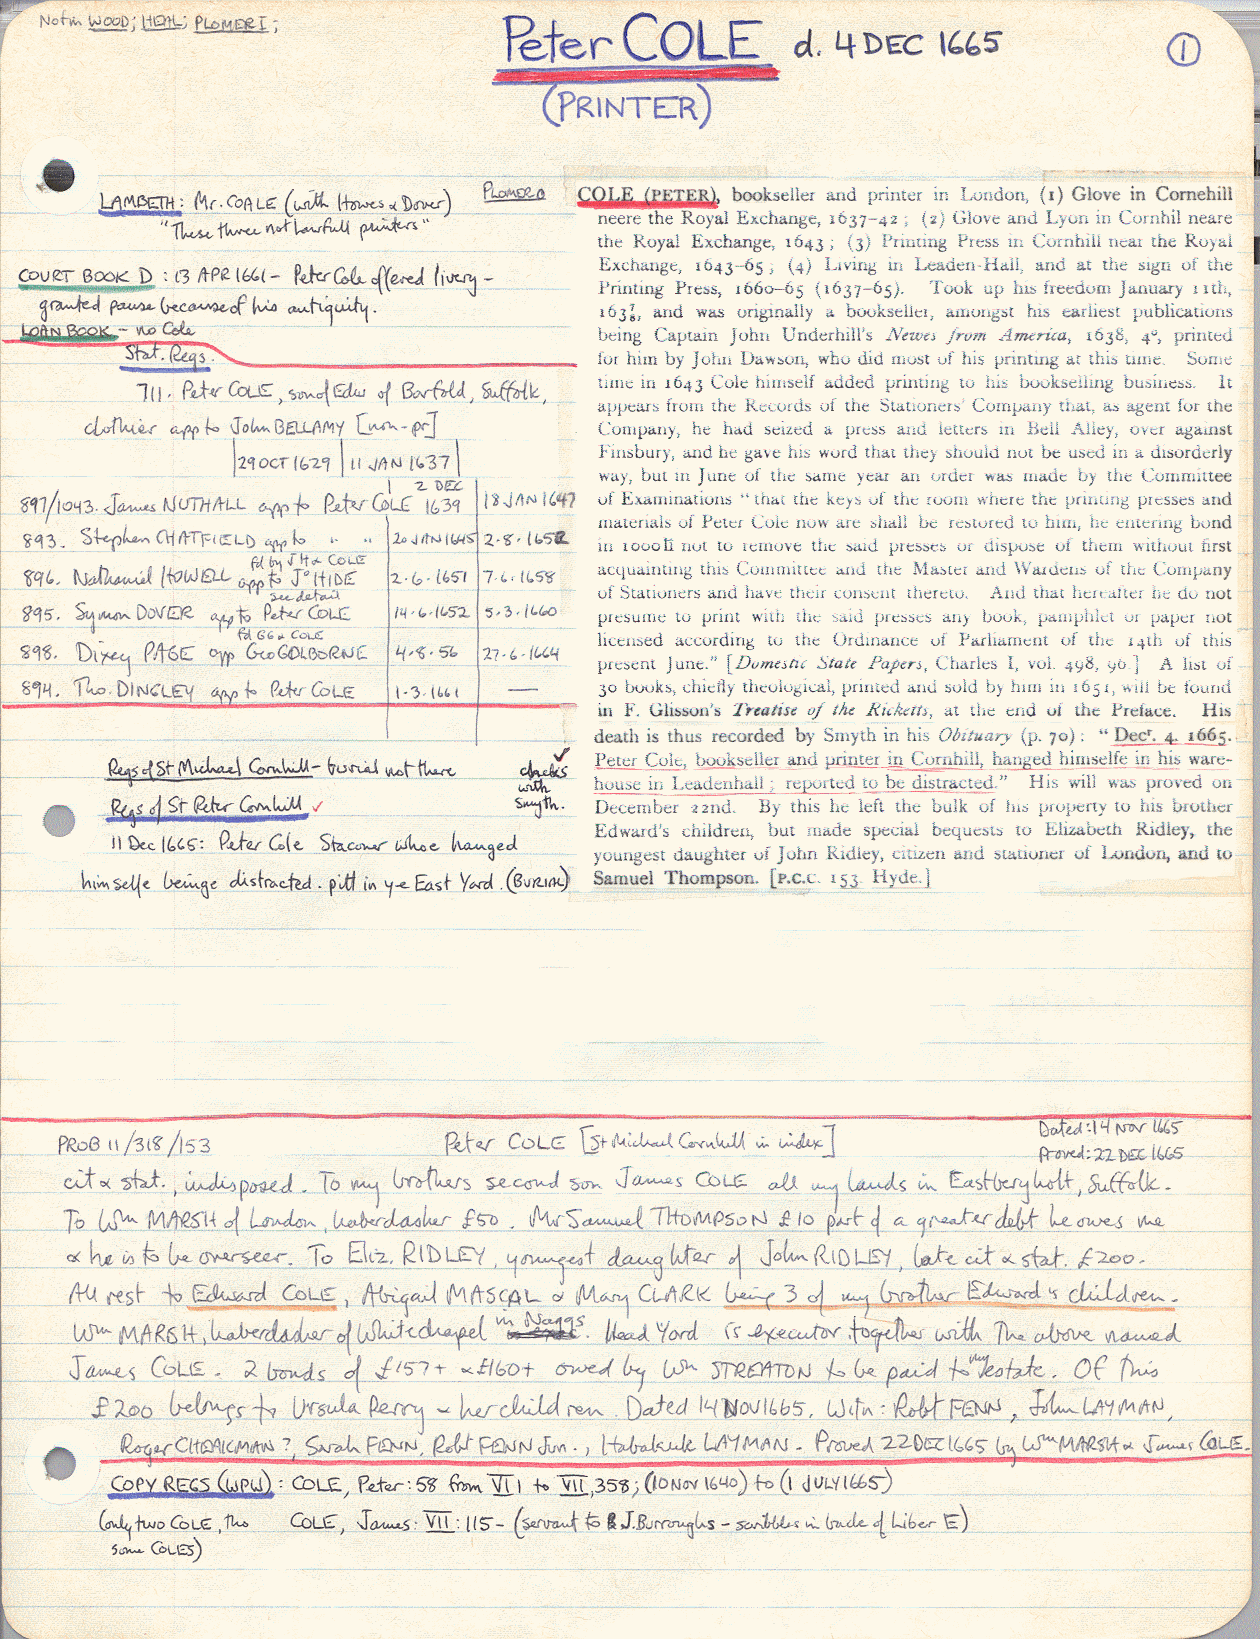 Not in WOOD; HEAL; PLOMER I;
Peter COLE d. 4 DEC 1665
1
(PRINTER)
LAMBETH: Mr. COALE (with Howes & Dover)
"These three not lawfull printers"
COURT BOOK D: 13 APR 1661 - Peter Cole offered livery -
granted pause because of his antiquity.
LOAN BOOK - no Cole
Stat. Regs.
711. Peter COLE, son of Edw of Barfold, Suffolk,
clothier app to John BELLAMY [non-pr]
29 OCT 1629 11 JAN 1637
897/1043. James NUTHALL app to Peter COLE 2 DEC 1639 18 JAN 1647
893. Stephen CHATFIELD app to " " 20 JAN 1645 2.8.1652
fd by JH & COLE
896. Nathaniel HOWELL app to Jo HIDE 2.6.1651 7.6.1658
see detail
895. Symon DOVER app to Peter COLE 14.6.1652 5.3.1660
fd GG & COLE
898. Dixey PAGE app Geo GOLBORNE 4.8.56 27.6.1664
894. Tho. DINGLEY app to Peter COLE 1.3.1661 —
Regs of St Michael Cornhill - burial not there
✓
checks
with
Smyth.
Regs of St Peter Cornhill ✓
11 Dec 1665: Peter Cole Staconer whoe hanged
himselfe beinge distracted. pitt in ye East Yard. (BURIAL)
PLOMER II
COLE (PETER), bookseller and printer in London, (1) Glove in Cornehill
neere the Royal Exchange, 1637-42; (2) Glove and Lyon in Cornhil neare
the Royal Exchange, 1643; (3) Printing Press in Cornhill near the Royal
Exchange, 1643-65; (4) Living in Leaden-Hall, and at the sign of the
Printing Press, 1660-65 (1637-65). Took up his freedom January 11th,
163 7/8, and was originally a bookseller, amongst his earliest publications
being Captain John Underhill's Newes from America, 1638, 4°, printed
for him by John Dawson, who did most of his printing at this time. Some
time in 1643 Cole himself added printing to his bookselling business. It
appears from the Records of the Stationers' Company that, as agent for the
Company, he had seized a press and letters in Bell Alley, over against
Finsbury, and he gave his word that they should not be used in a disorderly
way, but in June of the same year an order was made by the Committee
of Examinations "that the keys of the room where the printing presses and
materials of Peter Cole now are shall be restored to him, he entering bond
in 1000li not to remove the said presses or dispose of them without first
acquainting this Committee and the Master and Wardens of the Company
of Stationers and have their consent thereto. And that hereafter he do not
presume to print with the said presses any book, pamphlet or paper not
licensed according to the Ordinance of Parliament of the 14th of this
present June." [Domestic State Papers, Charles I, vol. 498, 96.] A list of
30 books, chiefly theological, printed and sold by him in 1651, will be found
in F. Glisson's Treatise of the Rickets, at the end of the Preface. His
death is thus recorded by Smyth in his Obituary (p. 70): "Decr. 4. 1665.
Peter Cole, bookseller and printer in Cornhill, hanged himselfe in his ware-
house in Leadenhall; reported to be distracted." His will was proved on
December 22nd. By this he left the bulk of his property to his brother
Edward's children, but made special bequests to Elizabeth Ridley, the
youngest daughter of John Ridley, citizen and stationer of London, and to
Samuel Thompson. [P.C.C. 153 Hyde.]
PROB 11/318/153 Peter COLE [St Michael Cornhill in index] Dated: 14 NOV 1665
Proved: 22 DEC 1665
cit & stat., indisposed. To my brothers second son James COLE all my lands in Eastbergholt, Suffolk.
To Wm MARSH of London, haberdasher £50. Mr Samuel THOMPSON £10 part of a greater debt he owes me
& he is to be overseer. To Eliz. RIDLEY, youngest daughter of John RIDLEY, late cit & stat. £200.
All rest to Edward COLE, Abigail MASCAL & Mary CLARK being 3 of my brother Edward's children.
Wm MARSH, haberdasher of Whitechapel in Naggs Head Yard is executor together with the above named
James COLE. 2 bonds of £157+ & £160+ owed by Wm STREATON to be paid to my estate. Of this
£200 belongs to Ursula Perry & her children. Dated 14 NOV 1665. Witn: Robt FENN, John LAYMAN,
Roger CHEAKMAN?, Sarah FENN, Robt FENN Jun., Habakuk LAYMAN. Proved 22 DEC 1665 by Wm MARSH & James COLE.
COPY REGS (WPW): COLE, Peter: 58 from VI 1 to VII, 358; (10 NOV 1640) to (1 JULY 1665)
(only two COLE, tho COLE, James: VII: 115 - (servant to J. Burroughs - scribbles in back of Liber E)
some COLES)